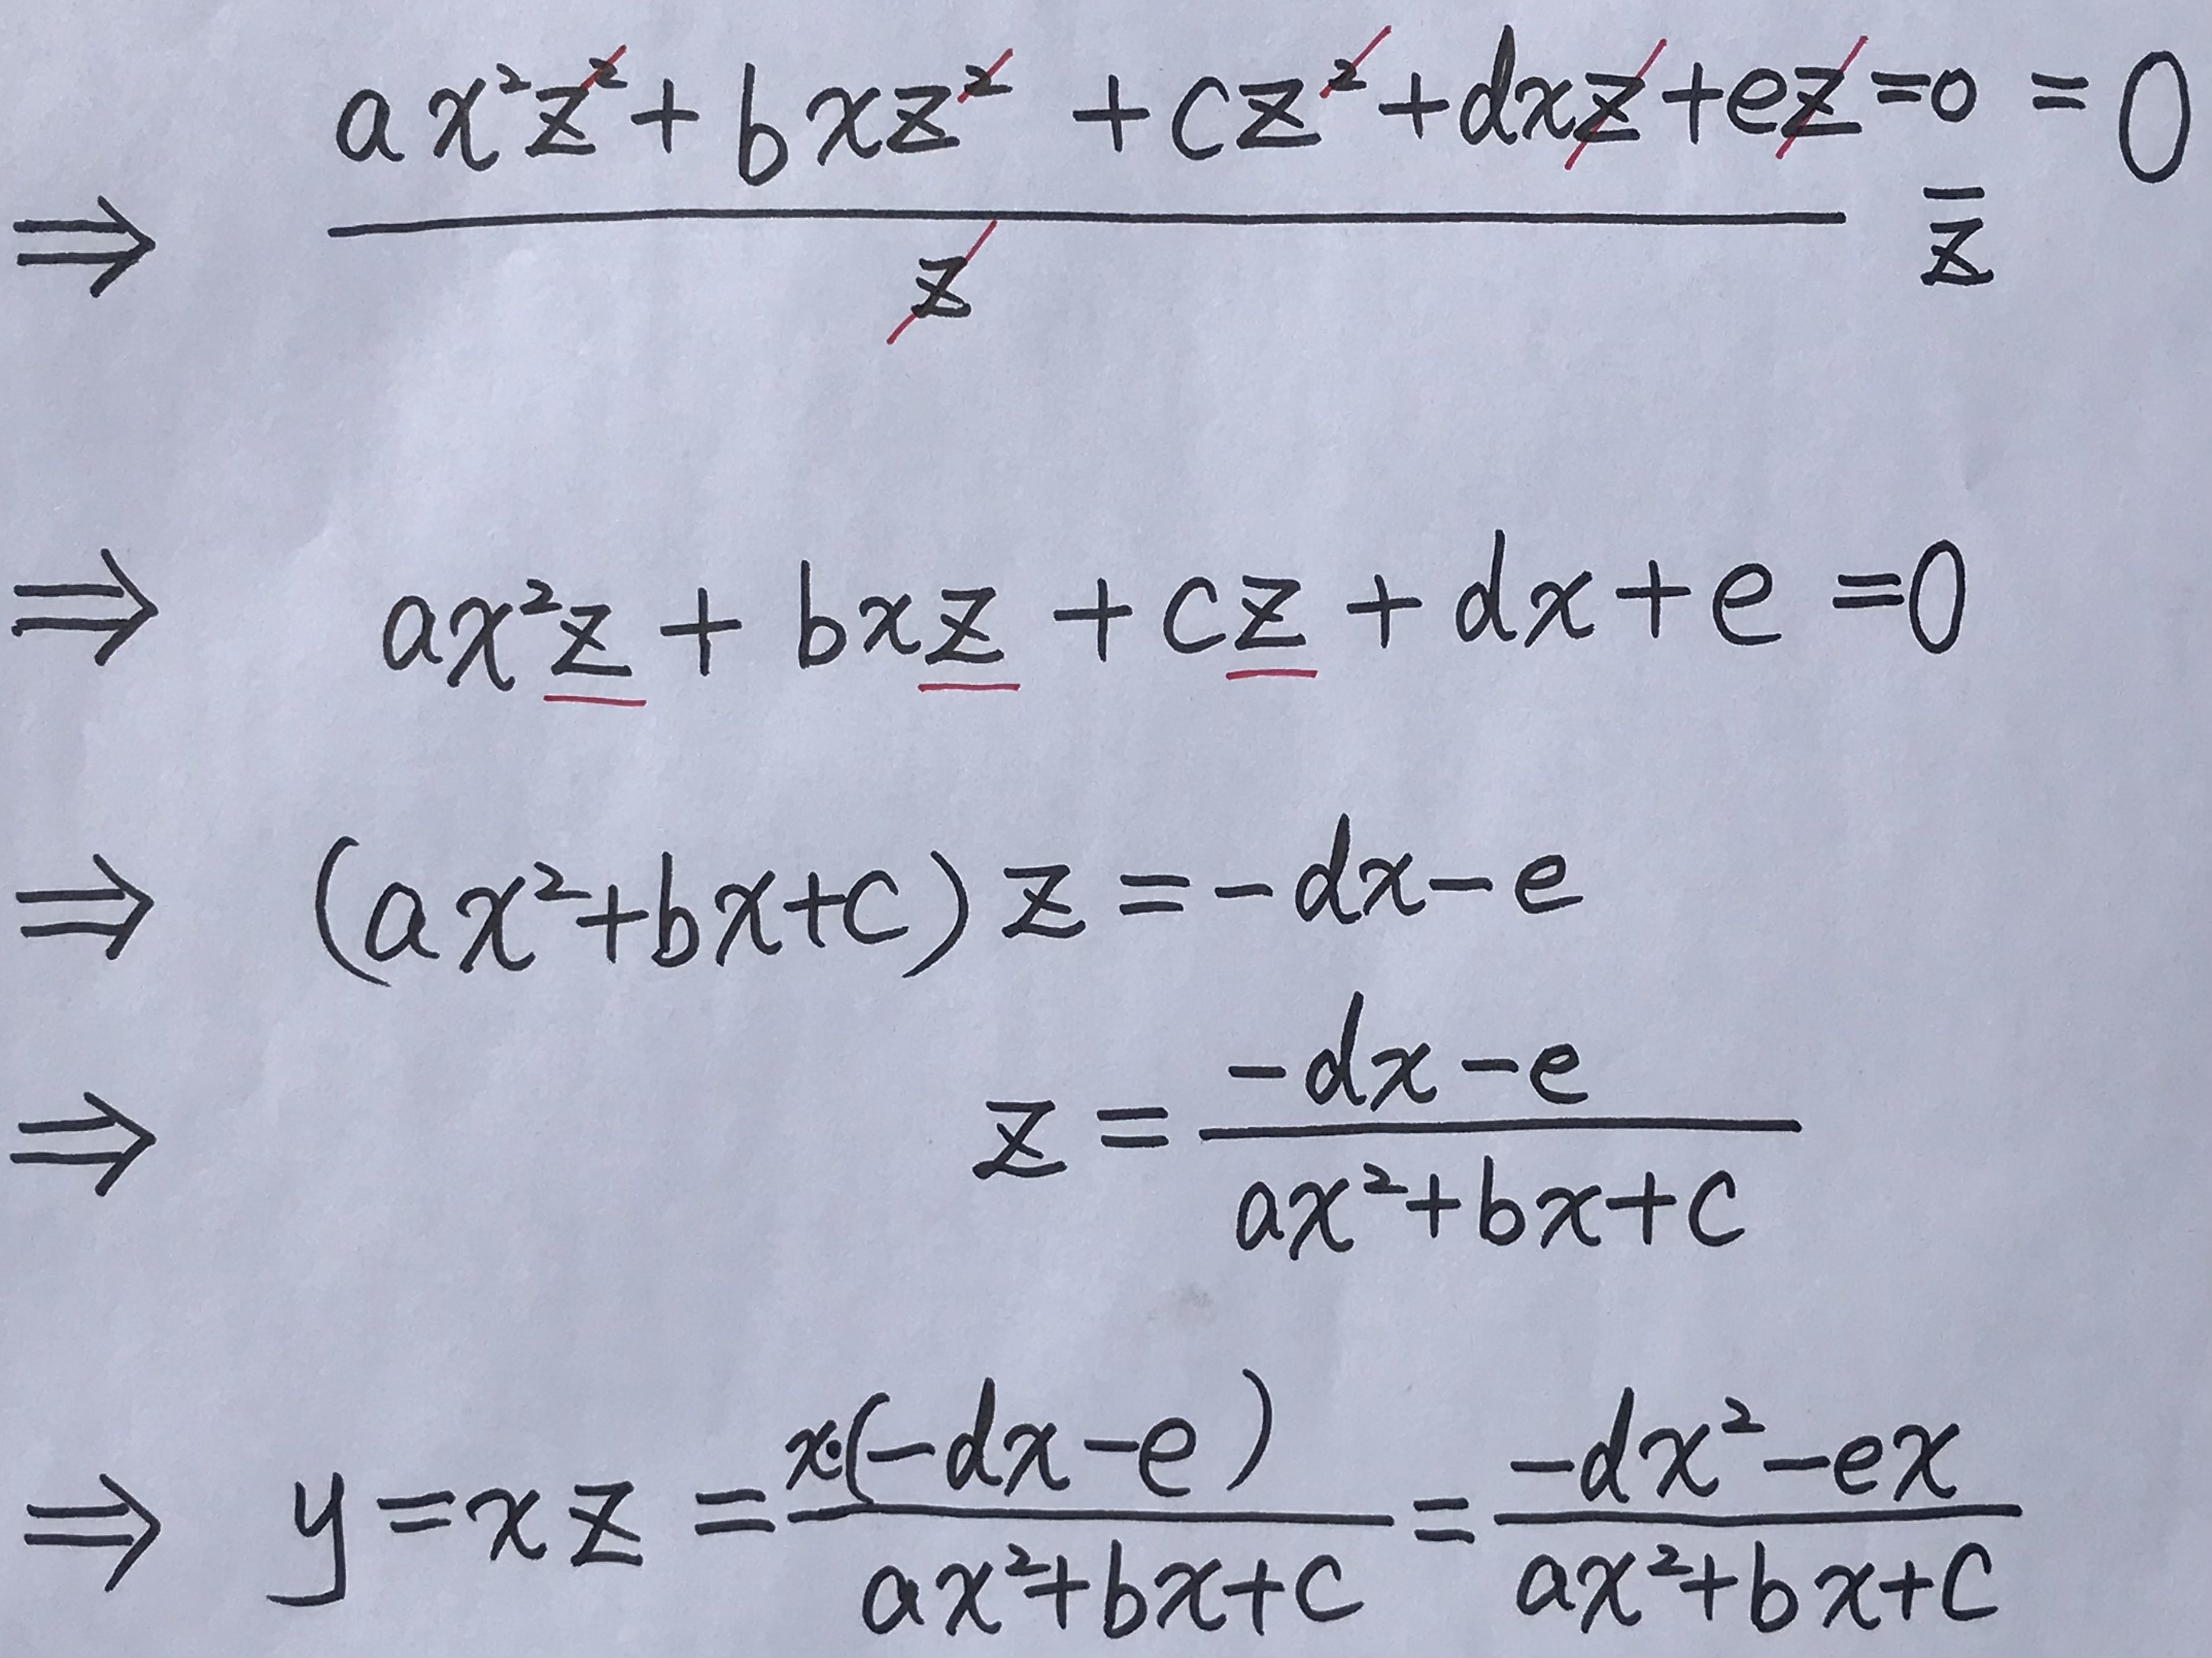 ⇒ (ax²z² + bxz² + cz² + dxz + ez)/z =0/z = 0
⇒ ax²z + bxz + cz + dx + e = 0
⇒ (ax²+bx+c) z = -dx-e
⇒ z = (-dx-e)/(ax²+bx+c)
⇒ y = xz = x·(-dx-e)/(ax²+bx+c) = (-dx²-ex)/(ax²+bx+c)